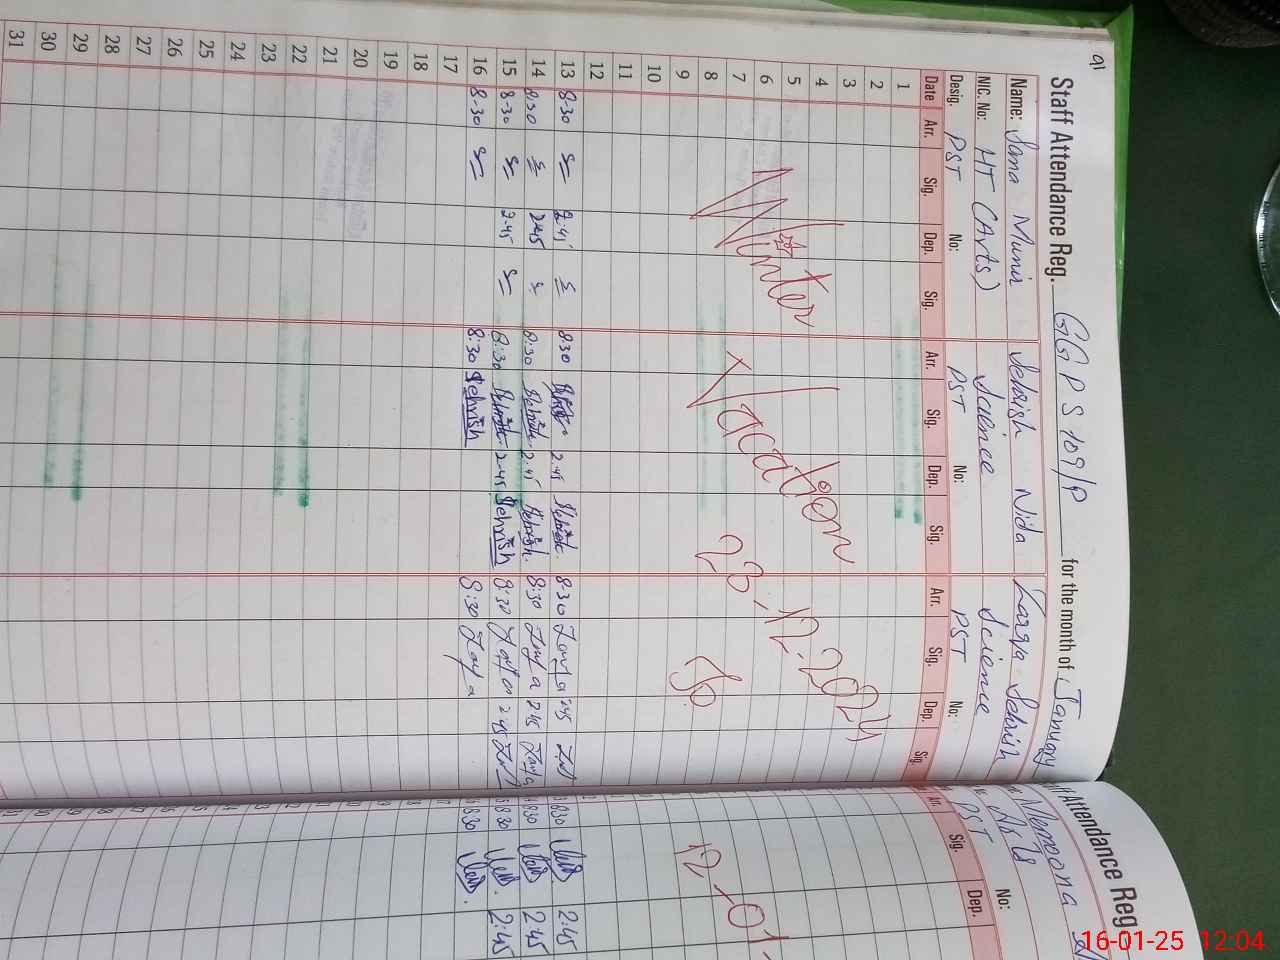 91
Staff Attendance Reg. GGPS 109/P for the month of January
Name: Sana Munir Sehrish Nida Zarqa Sehrish
NIC. No: HT (Arts) Science Science
Desig. PST No: PST No: PST No:
Date Arr. Sig. Dep. Sig. Arr. Sig. Dep. Sig. Arr. Sig. Dep. Sig.
1
2
3
4
5
6
7
8
9
10
11
12
Winter Vacation 23.12.2024 To
13 8-30 2.45 8:30 2.45 8:30 2:45
14 8:30 2.45 8:30 2.45 8:30 2:45
15 8-30 2.45 8:30 2-45 Sehrish 8:30 2:45
16 8-30 8:30 Sehrish 8:30
17
18
19
20
21
22
23
24
25
26
27
28
29
30
31
Attendance Reg
Memoona
Arts
PST No:
Arr. Sig. Dep.
12-01
830 2:45
830 2:45
830 2:45
830
16-01-25 12:04